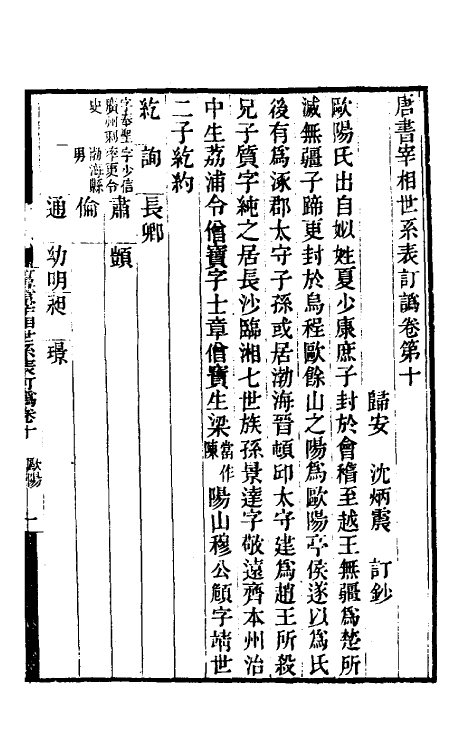 唐書宰相世系表訂譌卷第十
歸安　沈炳震　訂鈔
歐陽氏出自姒姓夏少康庶子封於會稽至越王無疆爲楚所
滅無疆子蹄更封於烏程歐餘山之陽爲歐陽亭侯遂以爲氏
後有爲涿郡太守子孫或居渤海晉頓邱太守建爲趙王所殺
兄子質字純之居長沙臨湘七世族孫景達字敬遠齊本州治
中生荔浦令僧寶字士章僧寶生梁當作陳陽山穆公頠字靖世
二子紇約
紇　詢　長卿
字奉聖　字少信
廣州刺　率更令
史　渤海縣
男
肅　顗
倫
通　幼明　昶　璟
唐書宰相世系表訂譌卷十　歐陽　一